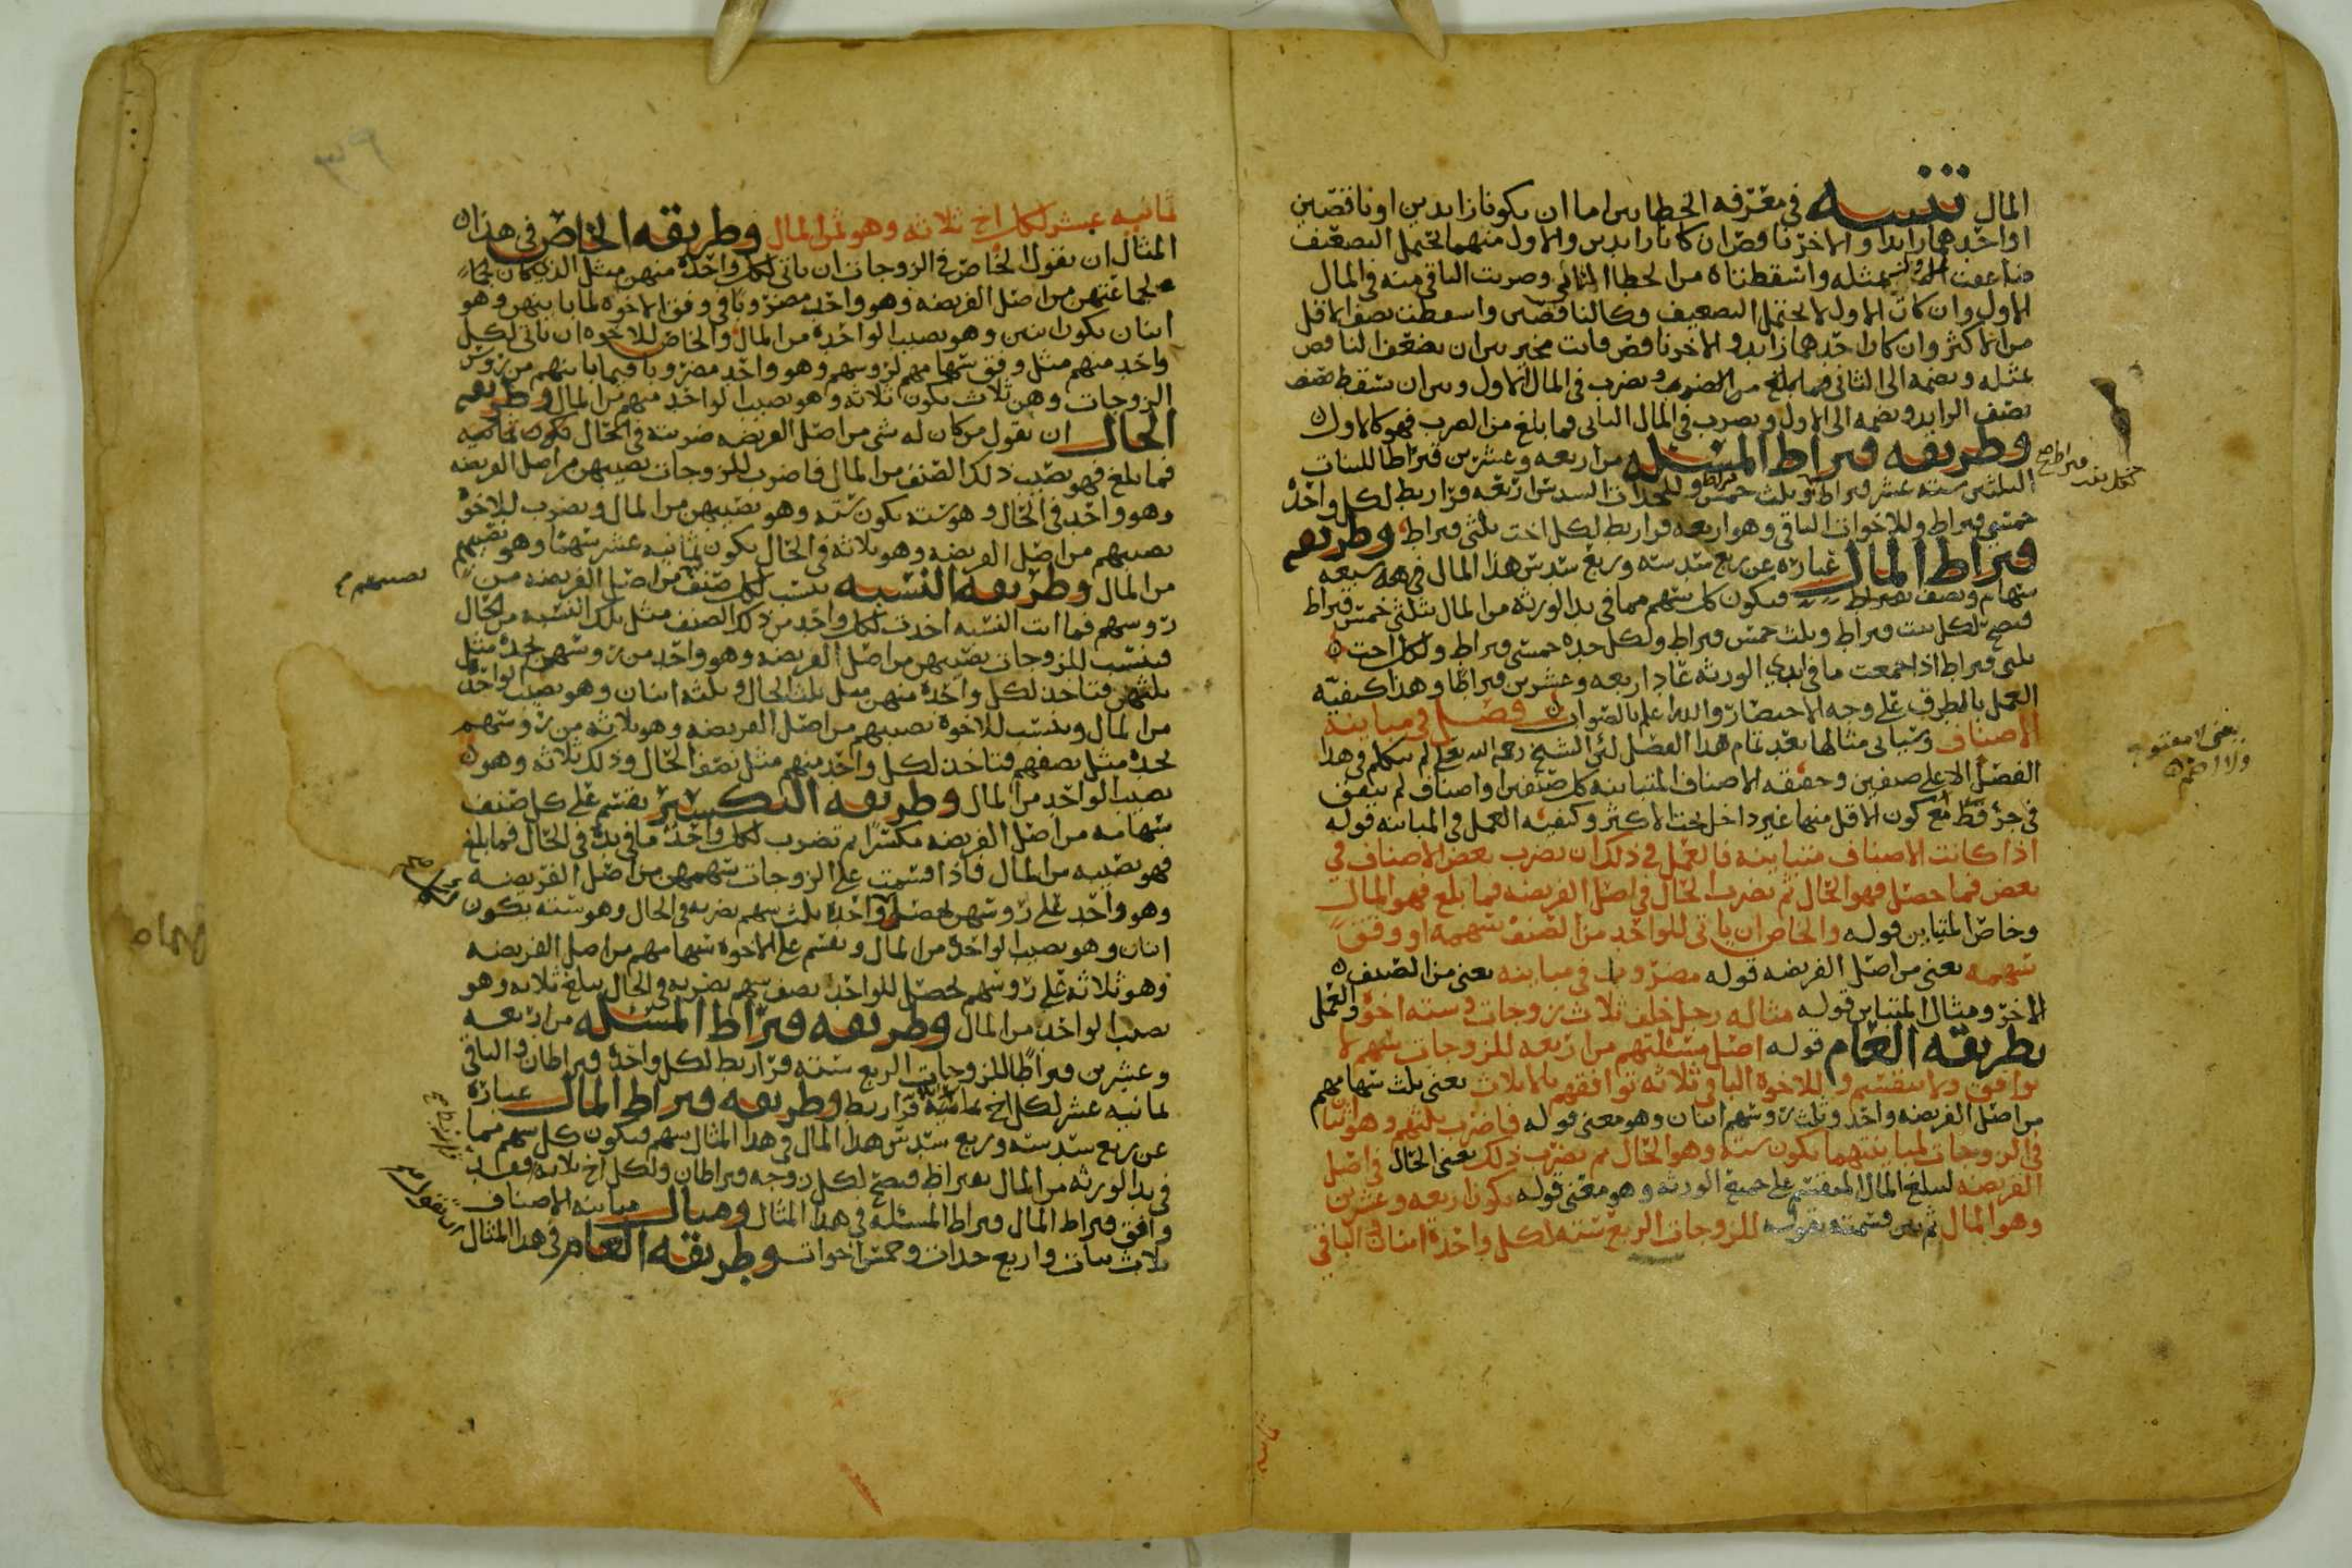 المال تنبيه في معرفه الخطاين اما ان يكونا زايدين او ناقصين
او احدهما زايدا والاخر ناقص ان كانا زايدين والاول منهما يحتمل التضعيف
ضاعفت بمثله واسقطناه من الخطا الثاني وضربت الباقي منه في المال
الاول وان كان الاول لا يحتمل التضعيف وكالناقصين واسقطت نصف الاقل
من الاكثر وان كان احدهما زايد والاخر ناقص فانت مخير بين ان تضعف الناقص
بمثله وتضمه الى الثاني فما بلغ من الضرب وتضرب في المال الاول وبين ان تسقط نصف
نصف الزايد وتضمه الى الاول وتضرب في المال الثاني فما بلغ من الضرب فهو كالاول
وطريقه قيراط المسئله من اربعه وعشرين قيراطا للبنات
الثلثين سته عشر قيراط وثلث خمس قيراط وللجدات السدس اربعه قراريط لكل واحده
خمسي قيراط وللاخوات الباقي وهو اربعه قراريط لكل اخت ثلثي قيراط وطريقه
قيراط المال عباره عن ربع سدسه وربع سدس هذا المال في هذه سبعه
سهام ونصف بقيراط فيكون كل سهم مما في يد الورثه من المال بثلثي خمس قيراط
فيصح لكل بنت قيراط وثلث خمس قيراط ولكل جده خمسي قيراط ولكل اخت
ثلثي قيراط اذا جمعت ما في ايدي الورثه عاد اربعه وعشرين قيراطا وهذا كيفيه
العمل بالطرق على وجه الاختصار والله اعلم بالصواب فصل في مباينه
الاصناف وسياتي مثالها بعد تمام هذا الفصل لئن الشيخ رحمه الله تعالى لم يتكلم في هذا
الفصل الا على صنفين وحقيقه الاصناف المتباينه كل صنفين او اصناف لم يتفق
في جزؤ قط مع كون الاقل منها غير داخل تحت الاكثر وكيفيه العمل في المباينه قوله
اذا كانت الاصناف متباينه فالعمل في ذلك ان تضرب بعض الاصناف في
بعض فما حصل فهو الحال ثم تضرب الحال في اصل الفريضه فما بلغ فهو المال
وخاص المتباين قوله والخاص ان ياتي للواحد من الصنف سهمه او وفق
سهمه يعني من اصل الفريضه قوله مضروبا في مباينه يعني من الصنف
الاخر ومثال المتباين قوله مثاله رجل خلف ثلاث زوجات وسته اخوه والعمل
بطريقه العام قوله اصل مسئلتهم من اربعه للزوجات سهم لا
يوافق ولا ينقسم وللاخوه الباقي ثلاثه توافقهم بالاثلاث يعني ثلث سهامهم
من اصل الفريضه واحد وثلث رؤسهم اثنان وهو معنى قوله فاضرب ثلثهم وهو اثنان
في الزوجات لمباينتهما يكون سته وهو الحال ثم تضرب ذلك يعني الحال في اصل
الفريضه ليبلغ المال المنقسم على جميع الورثه وهو معنى قوله يكون اربعه وعشرين
وهو المال ثم بين قسمته بقوله للزوجات الربع سته لكل واحدة اثنان والباقي
يعني لا مفتوحه
ولا اضم
٣٩
ثمانيه عشر لكل اخ ثلاثه وهو ثمن المال وطريقه الخاص في هذا
المثال ان تقول الخاص في الزوجات ان ياتي لكل واحدة منهن مثل الذي كان لجما
لجماعتهن من اصل الفريضه وهو واحد مضروبا في وفق الاخوه لما باينهن وهو
اثنان يكون اثنين وهو نصيب الواحدة من المال والخاص للاخوه ان ياتي لكل
واحد منهم مثل وفق سهامهم لرؤسهم وهو واحد مضروبا فيما باينهم من رؤس
الزوجات وهن ثلاث يكون ثلاثه وهو نصيب الواحد منهم من المال وطريقه
الحال ان تقول من كان له شي من اصل الفريضه ضربته في الحال يكون ثمانيه
فما بلغ فهو نصيب ذلك الصنف من المال فاضرب للزوجات نصيبهن من اصل الفريضه
وهو واحد في الحال وهو سته يكون سته وهو نصيبهن من المال وتضرب للاخوة
نصيبهم من اصل الفريضه وهو ثلاثه في الحال يكون ثمانيه عشر سهما وهو نصيبهم
من المال وطريقه النسبه تنسب لكل صنف من اصل الفريضه من
رؤسهم فما اتت النسبه اخذت لكل واحد من ذلك الصنف مثل تلك النسبه من الحال
فتنسب للزوجات نصيبهن من اصل الفريضه وهو واحد من رؤسهن تجده مثل
ثلثهن فتاخذ لكل واحدة منهن مثل ثلث الحال وثلثه اثنان وهو نصيب الواحدة
من المال وتنسب للاخوة نصيبهم من اصل الفريضه وهو ثلاثه من رؤسهم
تجده مثل نصفهم فتاخذ لكل واحد منهم مثل نصف الحال وذلك ثلاثه وهو
نصيب الواحد من المال وطريقه التكسير تقسم على كل صنف
سهامه من اصل الفريضه مكسرا ثم تضرب لكل واحد ما في يده في الحال فما بلغ
فهو نصيبه من المال فاذا قسمت على الزوجات سهمهن من اصل الفريضه
وهو واحد على رؤسهن تحصل لكل واحدة ثلث سهم تضربه في الحال وهو سته يكون
اثنان وهو نصيب الواحدة من المال وتقسم على الاخوة سهامهم من اصل الفريضه
وهو ثلاثه على رؤسهم تحصل للواحد نصف سهم تضربه في الحال يبلغ ثلاثه وهو
نصيب الواحد من المال وطريقه قيراط المسئله من اربعه
وعشرين قيراطا للزوجات الربع سته قراريط لكل واحدة قيراطان والباقي
ثمانيه عشر لكل اخ ثلاثه قراريط وطريقه قيراط المال عبارة
عن ربع سدسه وربع سدس هذا المال في هذا المثال سهم فيكون كل سهم مما
في يد الورثه من المال بقيراط فيصح لكل زوجه قيراطان ولكل اخ ثلاثه فقد
وافق قيراط المال قيراط المسئله في هذا المثال ومثال مباينه الاصناف
ثلاث بنات واربع جدات وخمس اخوات وطريقه العام في هذا المثال
نصيبهم